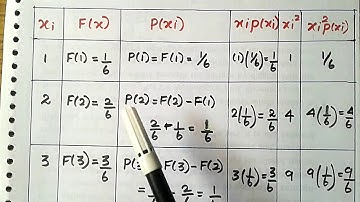 xi F(x) P(xi) xi p(xi) xi² xi² p(xi)
1 F(1) = 1/6 P(1) = F(1) = 1/6 (1)(1/6) = 1/6 1 1/6
2 F(2) = 2/6 P(2) = F(2) - F(1) 2(1/6) = 2/6 4 4(1/6) = 4/6
2/6 - 1/6 = 1/6
3 F(3) = 3/6 F(3) - F(2) 3(1/6) = 3/6 9 9(1/6) = 9/6
= 2/6 = 1/6